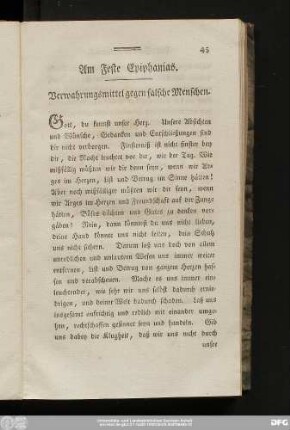 45
Am Feste Epiphanias.
Verwahrungsmittel gegen falsche Menschen.
Gott, du kennst unser Herz. Unsere Absichten
und Wünsche, Gedanken und Entschließungen sind
dir nicht verborgen. Finsterniß ist nicht finster bey
dir, die Nacht leuchtet vor dir, wie der Tag. Wie
mißfällig müßten wir dir denn seyn, wenn wir Ar-
ges im Herzen, List und Betrug im Sinne hätten!
Aber noch mißfälliger müßten wir dir seyn, wenn
wir Arges im Herzen und Freundschaft auf der Zunge
hätten, Böses dächten und Gutes zu denken vor-
gäben! Nein, dann könntest du uns nicht lieben,
deine Hand könnte uns nicht leiten, dein Schutz
uns nicht sichern. Darum laß uns doch von allem
unredlichen und unlautern Wesen uns immer weiter
entfernen, List und Betrug von ganzem Herzen has-
sen und verabscheuen. Mache es uns immer ein-
leuchtender, wie sehr wir uns selbst dadurch ernie-
drigen, und deine Welt dadurch schaden. Laß uns
insgesamt aufrichtig und redlich mit einander umge-
hen, rechtschaffen gesinnt seyn und handeln. Gib
uns dabey die Klugheit, daß wir uns nicht durch
unsre